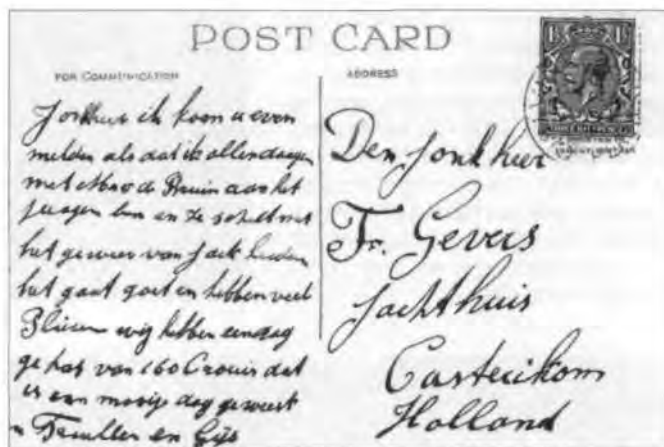 POST CARD
FOR COMMUNICATION
ADDRESS
Jonkheer ik koom u even
melden als dat ik allendaegen
met de Bruin aan het
jaagen ben en ze schiet met
het geweer van Jack
het gaat goet en hebben veel
wij hebben een dag
ge hat van 160 Crouis dat
is een mooije dag geweest
en Gijs
Den Jonkheer
Fr. Gevers
Jachthuis
Castrickom
Holland